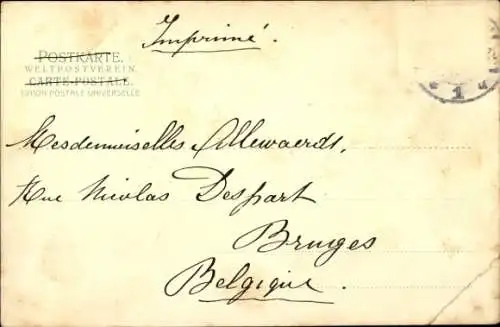 Imprimé.
POSTKARTE.
WELTPOSTVEREIN.
CARTE POSTALE.
UNION POSTALE UNIVERSELLE.
1
Mesdemoiselles Allewaerdt,
Rue Nicolas Despart
Bruges
Belgique.